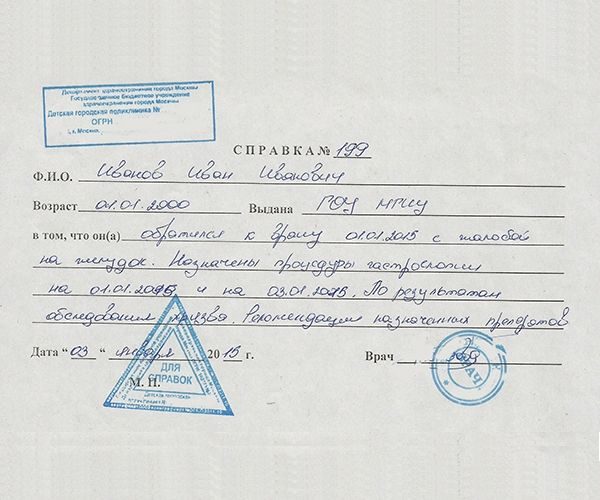 Департамент здравоохранения города Москвы
Государственное бюджетное учреждение
здравоохранения города Москвы
Детская городская поликлиника №
ОГРН
г. Москва
СПРАВКА № 199
Ф.И.О. Иванов Иван Иванович
Возраст 01.01.2000 Выдана ГОУ МГИУ
в том, что он(а) обратился к врачу 01.01.2015 с жалобой
на желудок. Назначены процедуры гастроскопии
на 01.01.2015, и на 03.01.2015. По результатам
обследования язва. Рекомендации назначенных препаратов
Дата “03“ января 2015 г. Врач
М. П.
ДЛЯ
СПРАВОК
ВРАЧ